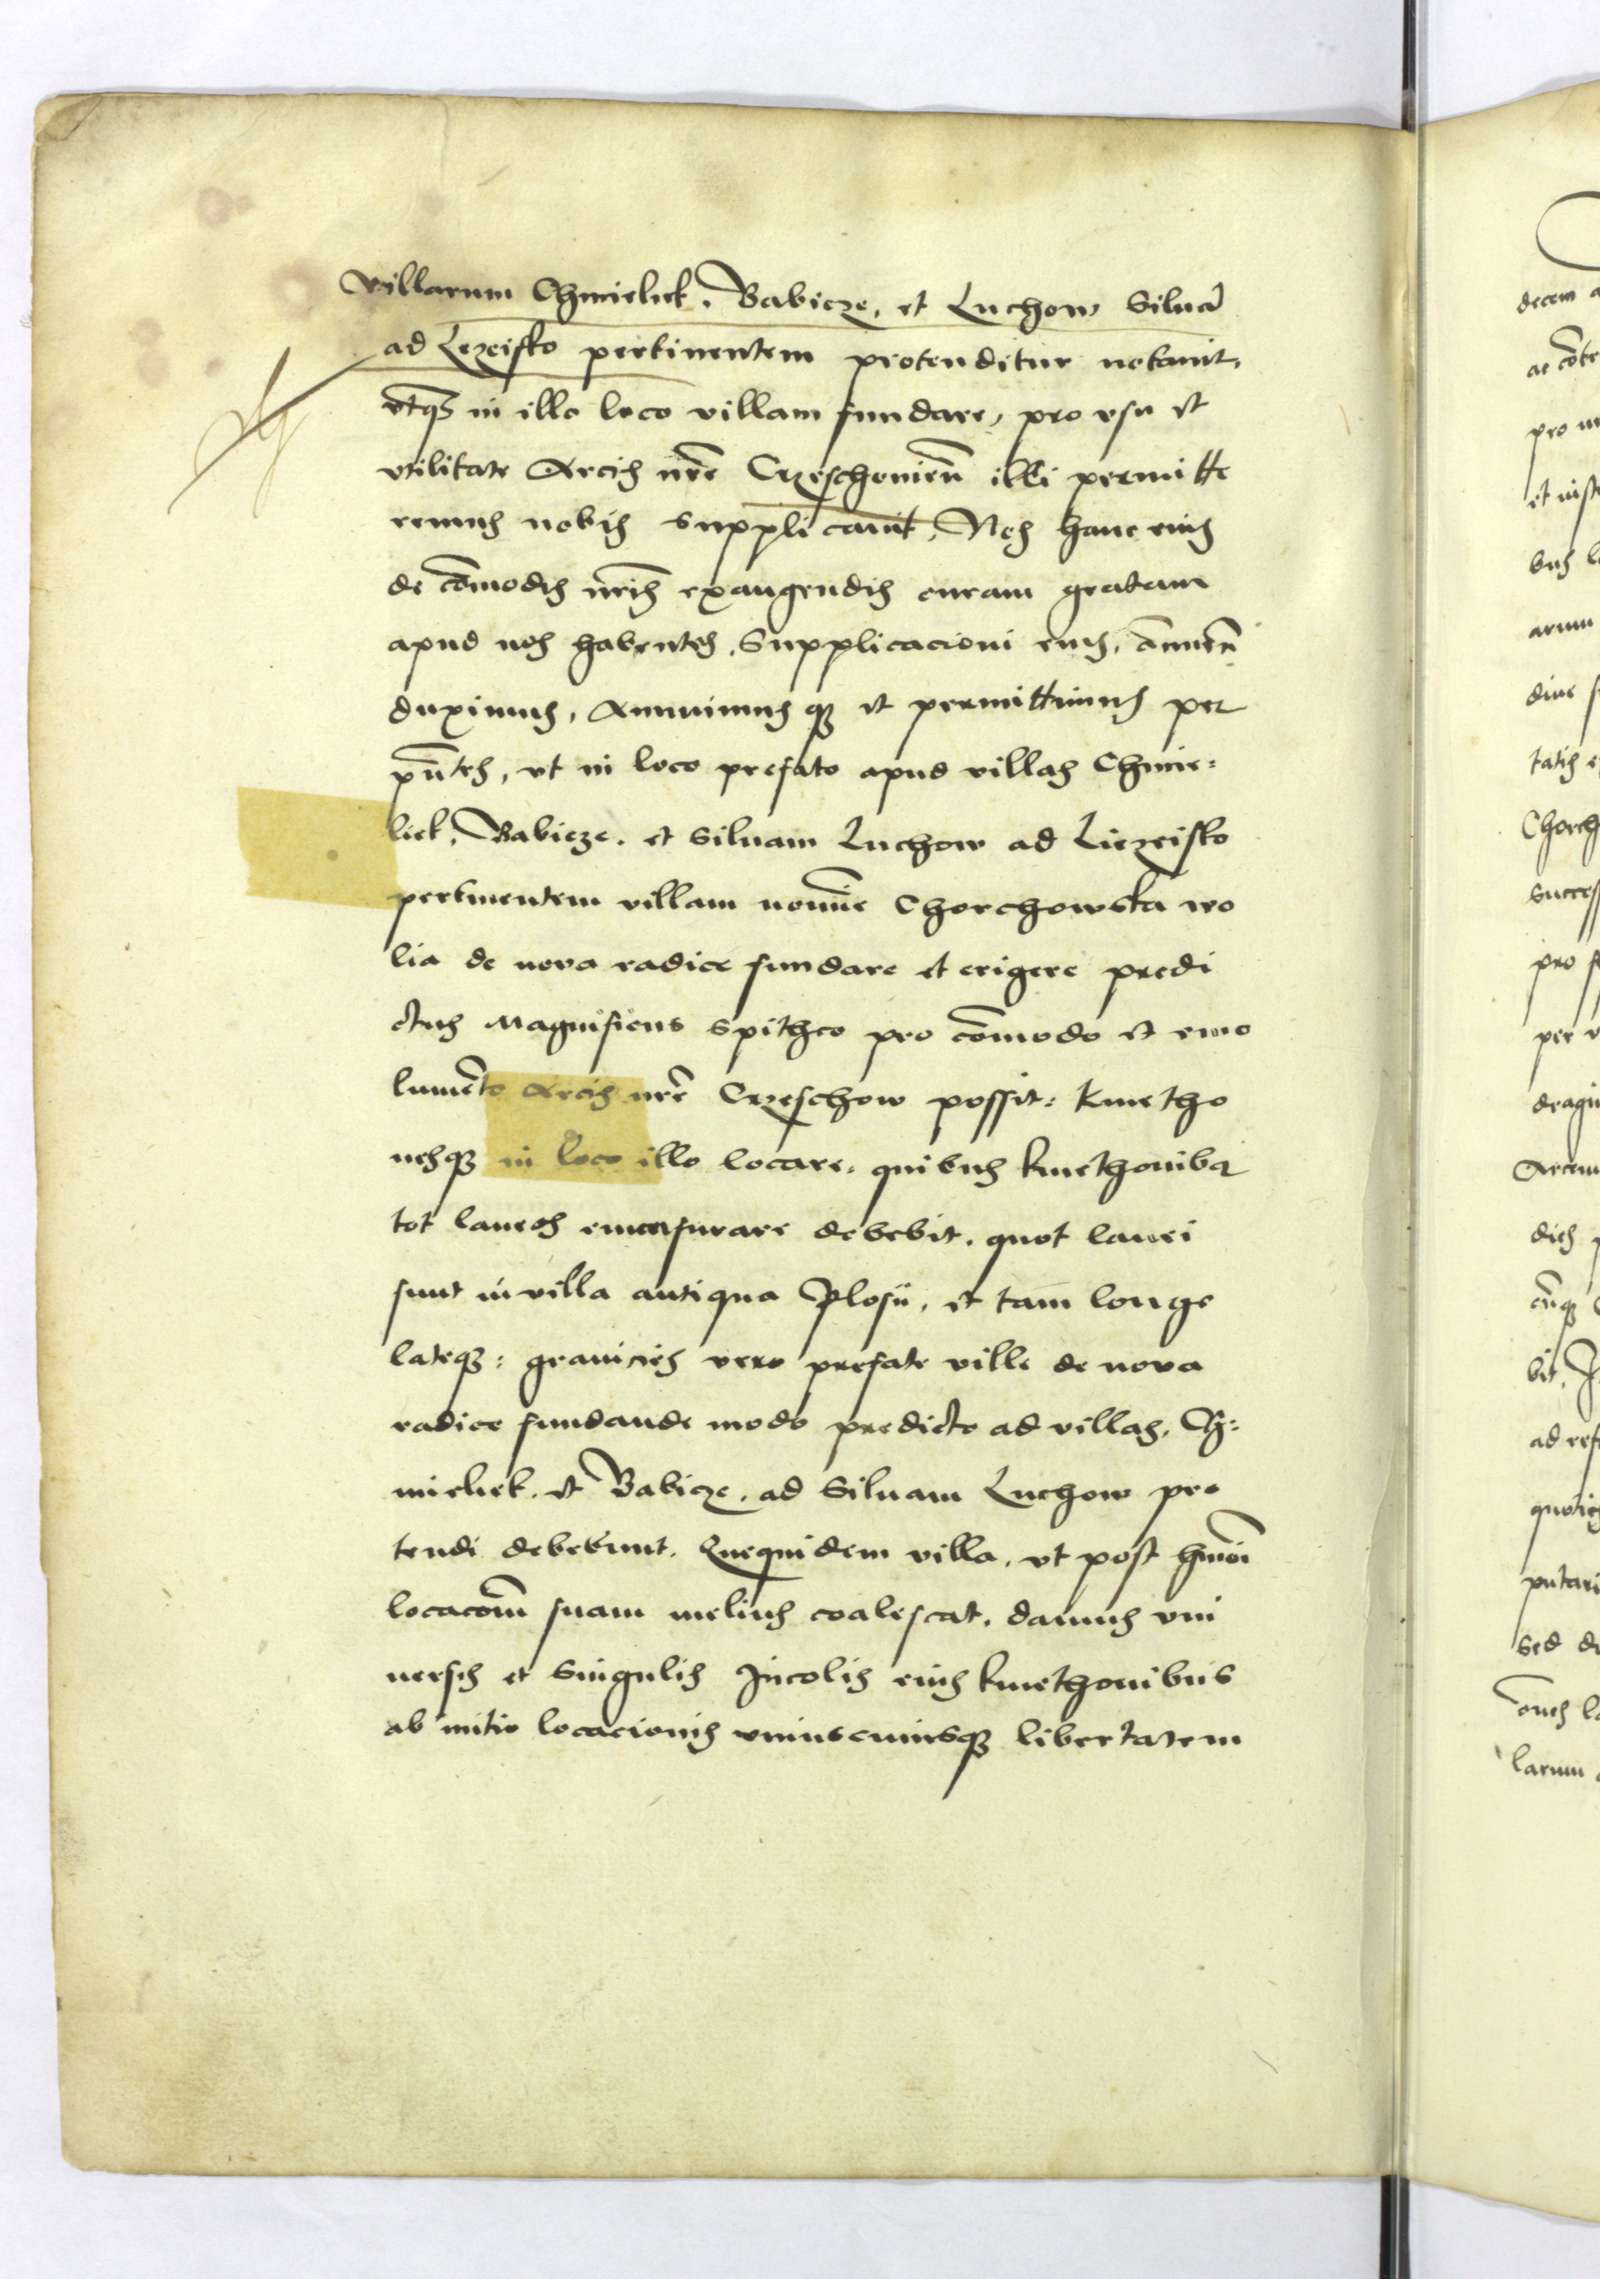 villarum Chmieliek. Babicze, et Luchow Siluã
ad Lezeisko pertinentem protenditur notauit,
vtq; in illo loco villam fundare, pro vsu et
vtilitate Arcis nr̃e Crzeschouieñ illi permitte
remus nobis supplicauit, Nos hanc eius
de cõmodis nr̃is exaugendis curam gratam
apud nos habentes, Supplicacioni eius, ãnuen̄
duximus, Annuimusq; et permittimus per
pñtes, vt in loco prefato apud villas Chmie:
liek, Babicze. et Siluam Luchow ad Liezeisko
pertinentem villam nomĩe Chorchowska wo
lia de noua radice fundare et erigere predi
ctus Magnificus Spithco pro cõmodo et emo
lumẽto Arcis nr̃e Crzeschow possit: kmetho
nesq; in loco illo locare, quibus kmethonibꝯ
tot laneos emensurare debebit, quot lanei
sunt in villa antiqua Plosii, et tam longe
lateq;: granicies vero prefate ville de noua
radice fundande modo predicto ad villas, Ch:
mieliek. et Babicze, ad Siluam Luchow pro
tendi debebunt. Quequidem villa, vt post hm̃õi
locacõm suam melius coalescat, damus vni
uersis et Singulis Incolis eius kmethonibus
ab initio locacionis vniuscuiusq; libertatem

decem a
ac cõte
pro
et iust
bus l
arum
diue s
tatis e
Chorch
success
pro s
per v
dragin
Arcem
dies p
cũq;
bit. I
ad ref
quoties
putari
Sed de
omes l
larum